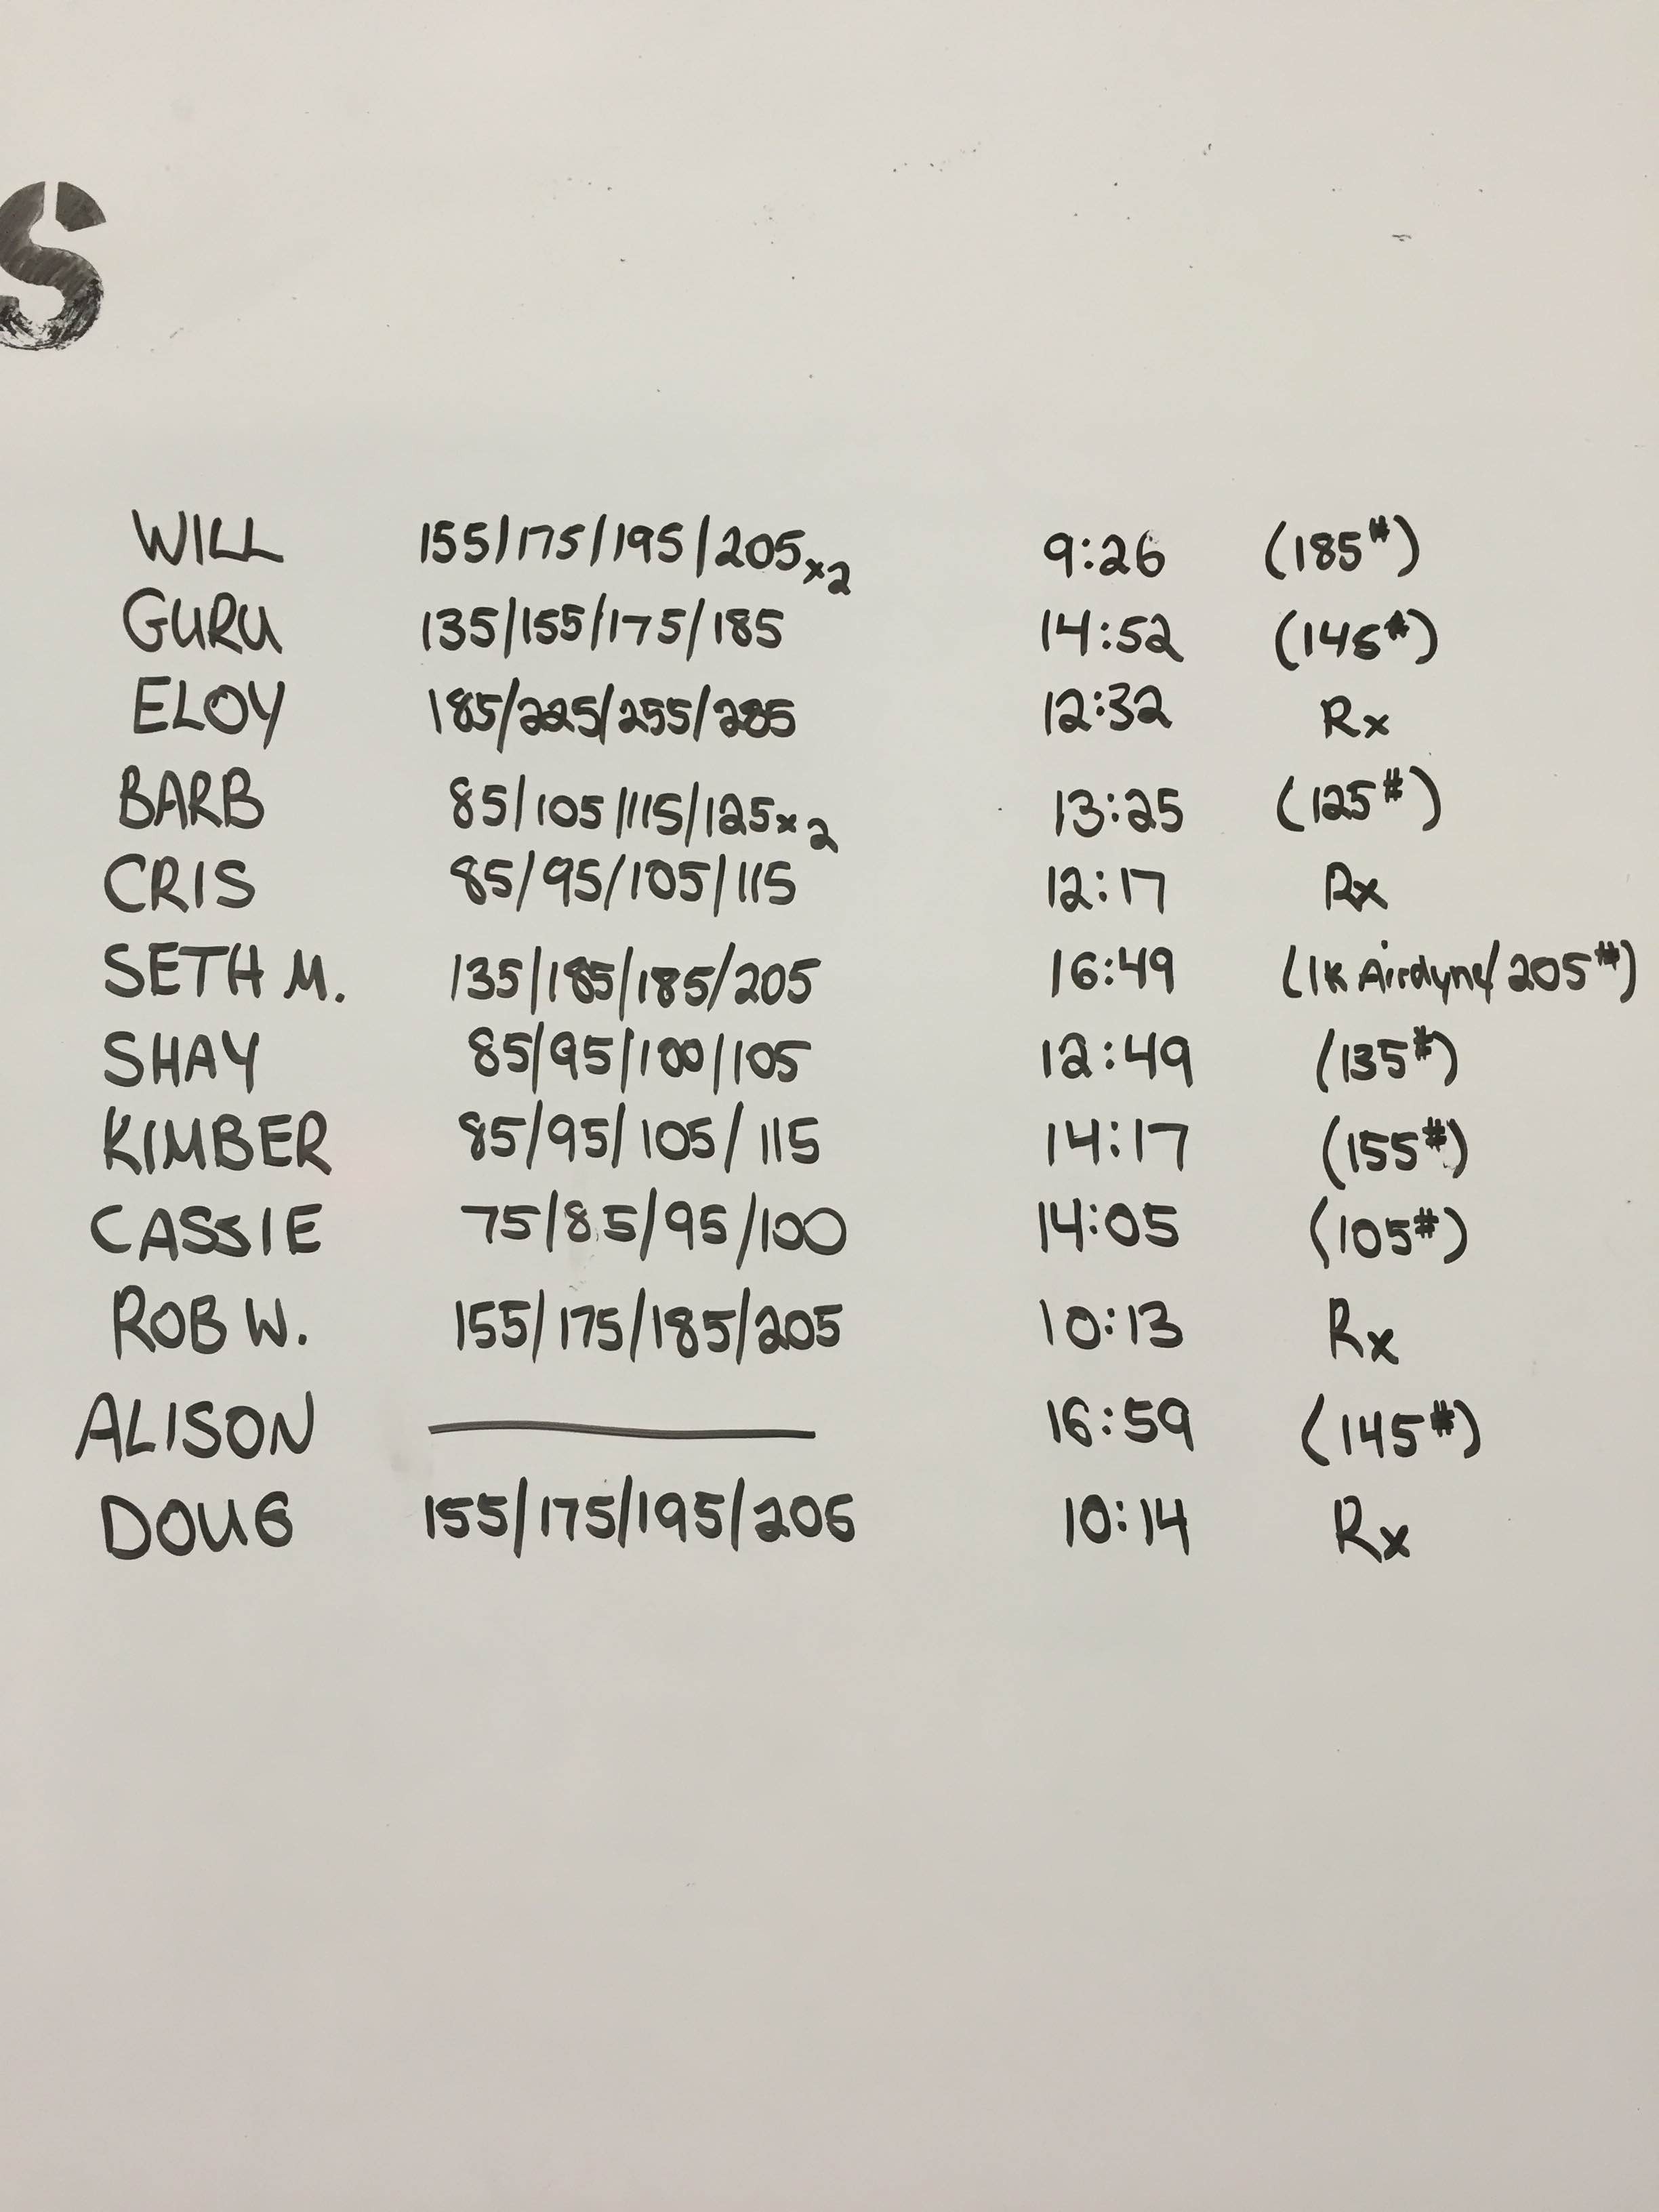 S
WILL 155/175/195/205x2 9:26 (185#)
GURU 135/155/175/185 14:52 (145#)
ELOY 185/225/255/285 12:32 Rx
BARB 85/105/115/125x2 13:25 (125#)
CRIS 85/95/105/115 12:17 Rx
SETH M. 135/185/185/205 16:49 (1K Airdyne/205#)
SHAY 85/95/100/105 12:49 (135#)
KIMBER 85/95/105/115 14:17 (155#)
CASSIE 75/85/95/100 14:05 (105#)
ROB W. 155/175/185/205 10:13 Rx
ALISON — 16:59 (145#)
DOUG 155/175/195/205 10:14 Rx